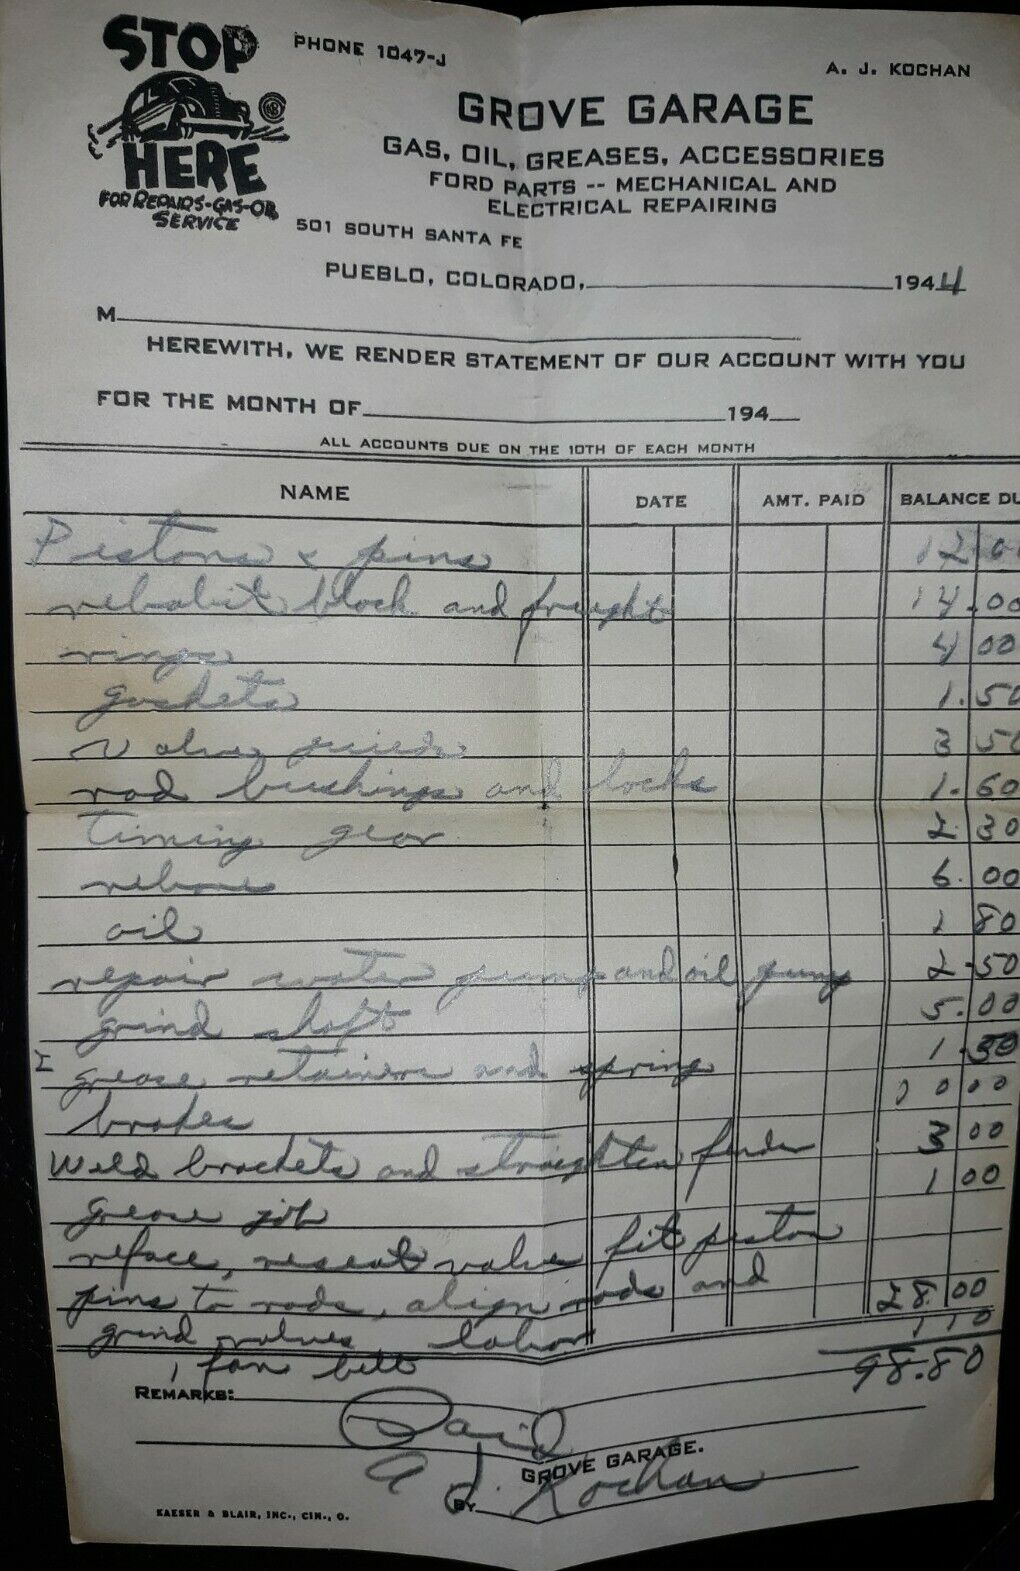 STOP
HERE
FOR REPAIRS-GAS-OIL
SERVICE
PHONE 1047-J
A. J. KOCHAN
GROVE GARAGE
GAS, OIL, GREASES, ACCESSORIES
FORD PARTS -- MECHANICAL AND
ELECTRICAL REPAIRING
501 SOUTH SANTA FE
PUEBLO, COLORADO, 1944
M
HEREWITH, WE RENDER STATEMENT OF OUR ACCOUNT WITH YOU
FOR THE MONTH OF 194
ALL ACCOUNTS DUE ON THE 10TH OF EACH MONTH
NAME DATE AMT. PAID BALANCE DU
Pistons & pins 12.00
rebabit block and freight 14.00
rings 4 00
gaskets 1.50
Valve 3 50
rod bushings and locks 1.60
timing gear 2.30
rebore 6.00
oil 1 80
repair water pump and oil pump 2.50
grind shaft 5.00
2 grease retainers and spring 1.50
brakes 10 00
Weld brackets and straighten fender 3 00
grease job 1 00
reface, reseat valve fit piston
pins to rods, align rods and
grind valves labor 28.00
1 fan belt 1 10
98.80
REMARKS:
Paid
GROVE GARAGE.
BY A J. Kochan
KAESER & BLAIR, INC., CIN., O.